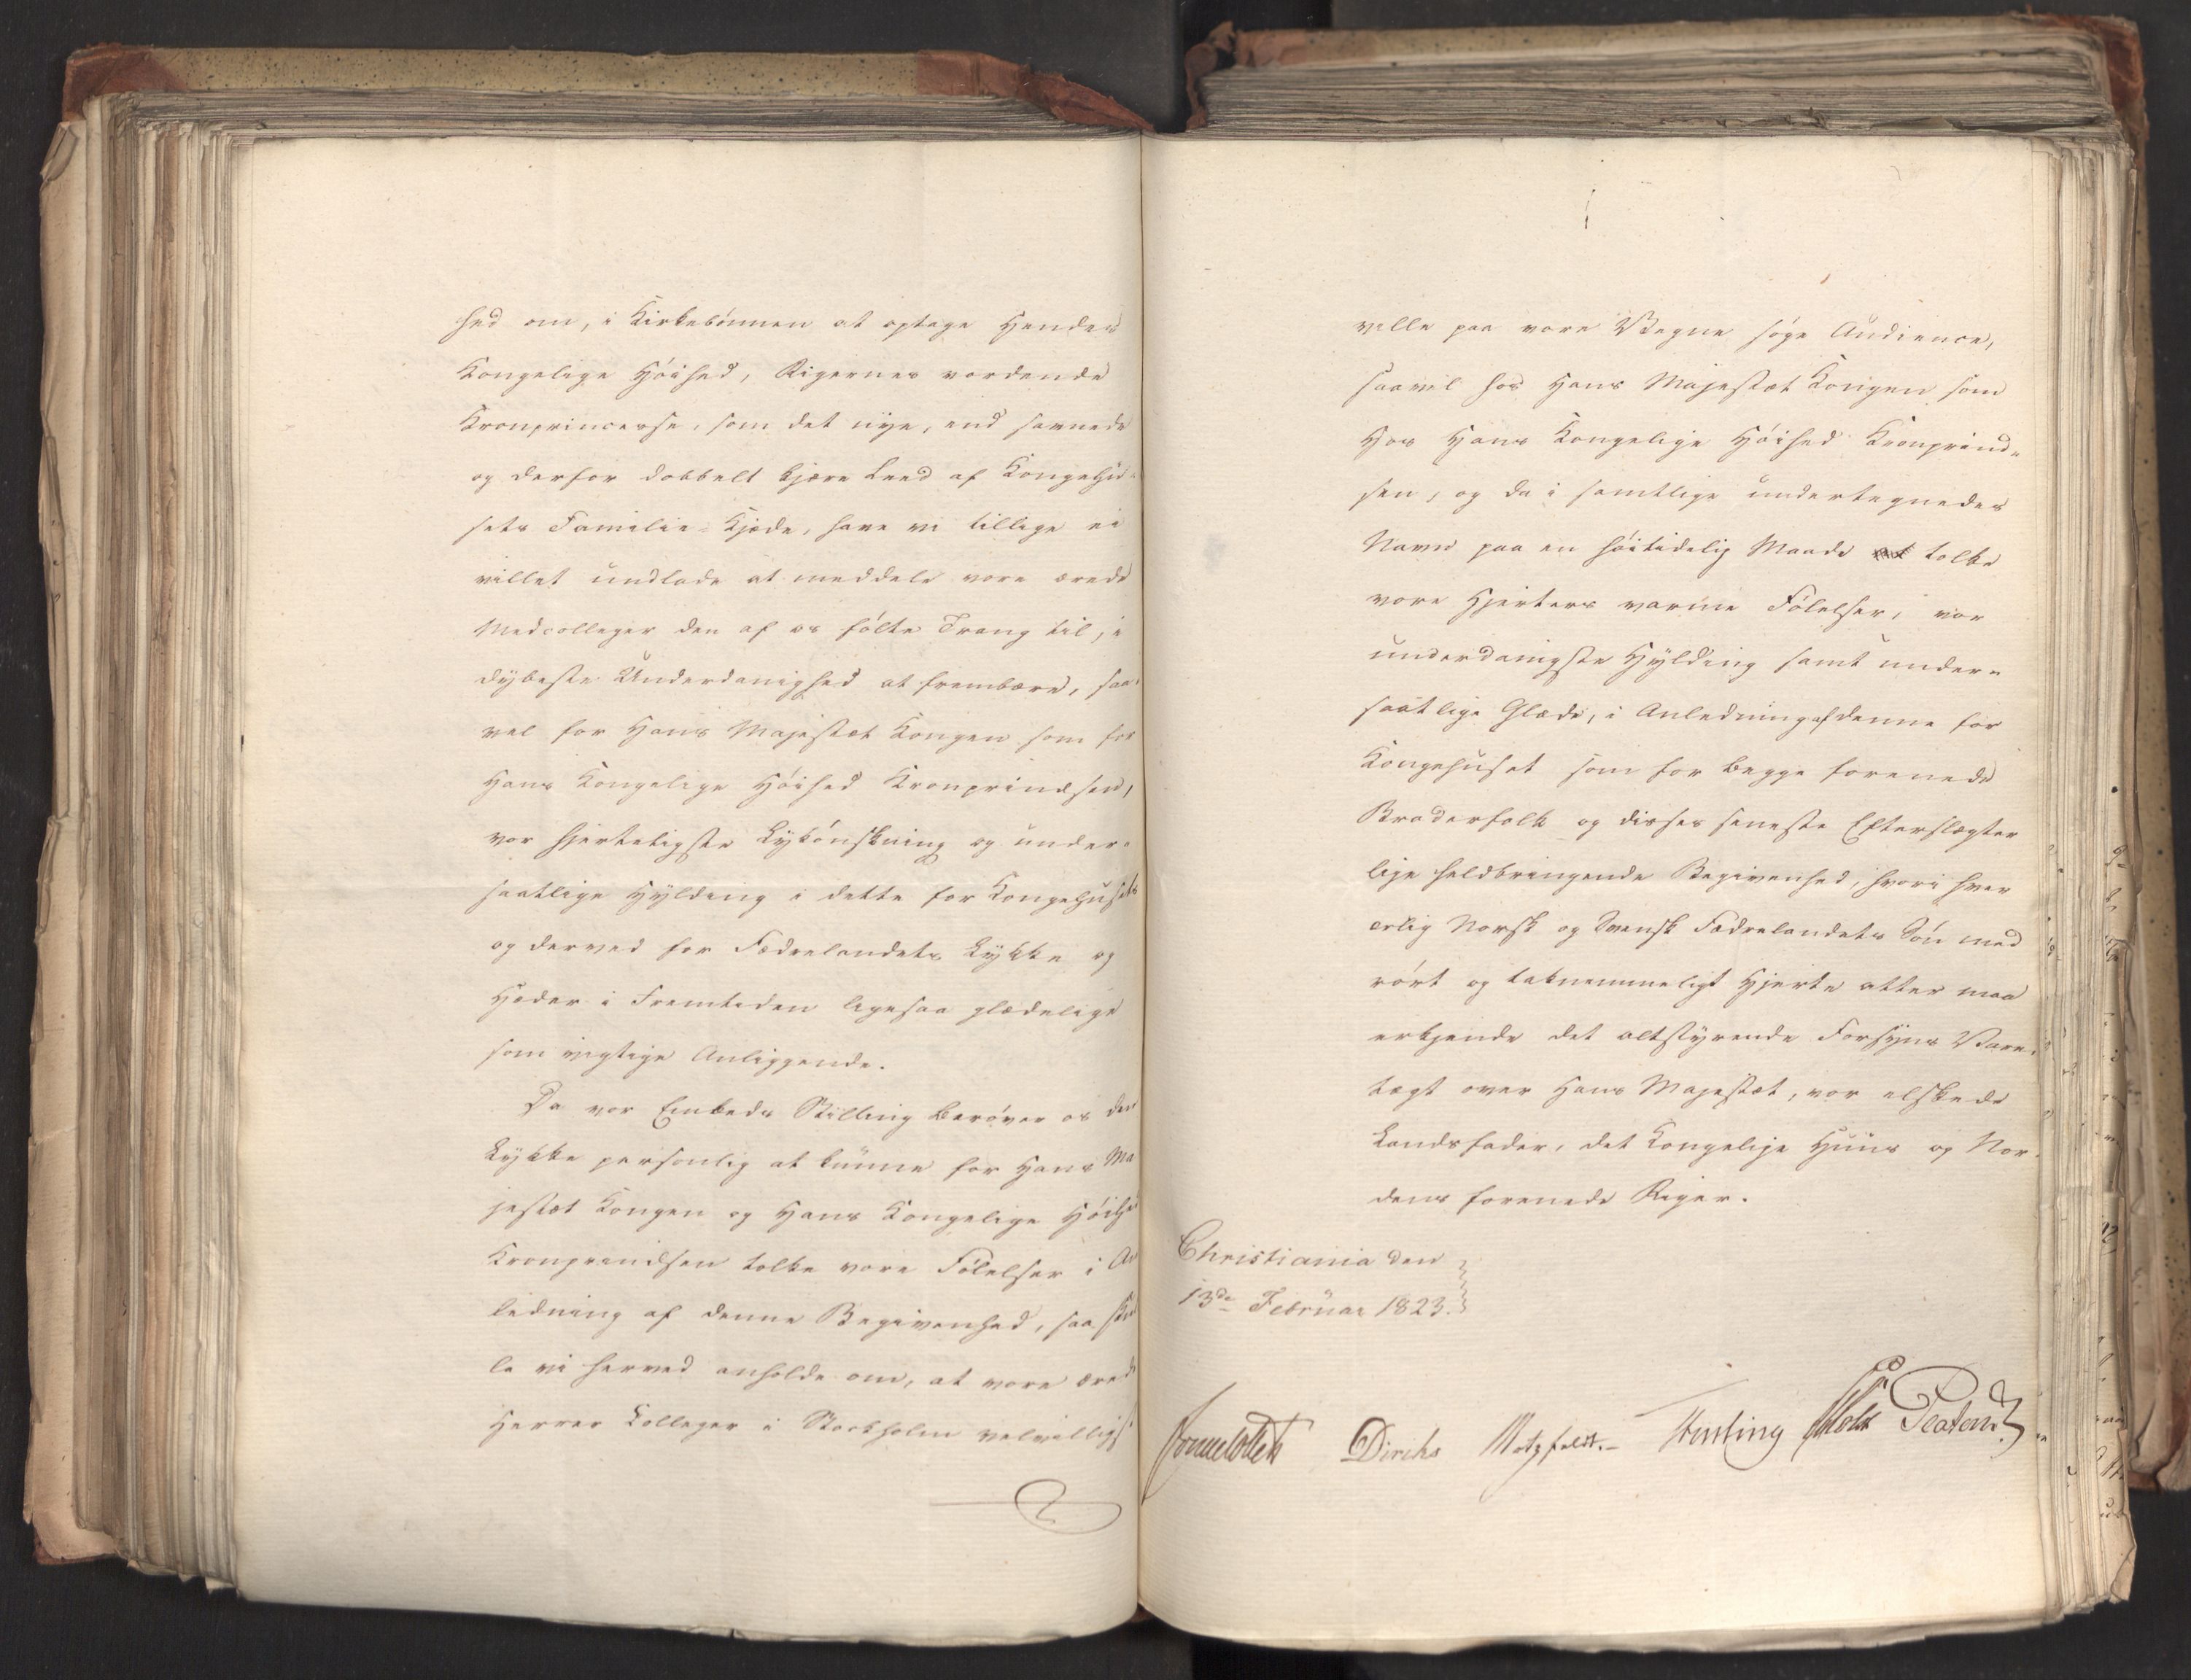 hed om, i Kirkebönnen at optage Hendes
Kongelige Höihed, Rigernes vordende
Kronprincesse, som det nye, end savnede
og derfor dobbelt kjære Leed af Kongehu-
sets Familie-Kjæde, have vi tillige ei
villet undlade at meddele vore ærede
Medcolleger den af os fölte Trang til, i
dybeste Underdanighed at frembære, saa-
vel for Hans Majestæt Kongen som for
Hans Kongelige Höihed Kronprindsen,
vor hjerteligste Lykönskning og under-
saatlige Hylding i dette for Kongehusets
og derved for Fædrelandets Lykke og
Hæder i Fremtiden ligesaa glædelige
som vigtige Anliggende.
Da vor Embeds Stilling beröver os den
Lykke personlig at kunne for Hans Ma
jestæt Kongen og Hans Kongelige Höihed
Kronprindsen tolke vore Fölelser i An
ledning af denne Begivenhed, saa skul
le vi herved anholde om, at vore ærede
Herrer Colleger i Stockholm velvilligst
ville paa vore Vegne söge Audience,
saavel hos Hans Majestæt Kongen som
hos Hans Kongelige Höihed Kronprind-
sen, og da i samtlige undertegnedes
Navn paa en höitidelig Maade tolke
vore Hjerters varme Fölelser, vor
underdanigste Hylding samt under-
saatlige Glæde, i Anledning af denne for
Kongehuset som for begge forenede
Broderfolk og disses seneste Efterslægter
lige heldbringende Begivenhed, hvori hver
ærlig Norsk og Svensk Fædrelandets Sön med
rört og taknemmeligt Hjerte atter maa
erkjende det altstyrende Forsyns Vare-
tægt over Hans Majestæt, vor elskede
Landsfader, det Kongelige Huus og Nor-
dens forenede Riger.
Christiania den
13de Februar 1823.
Sommerhielm Diriks Motzfeldt. Fasting J Holst Platou